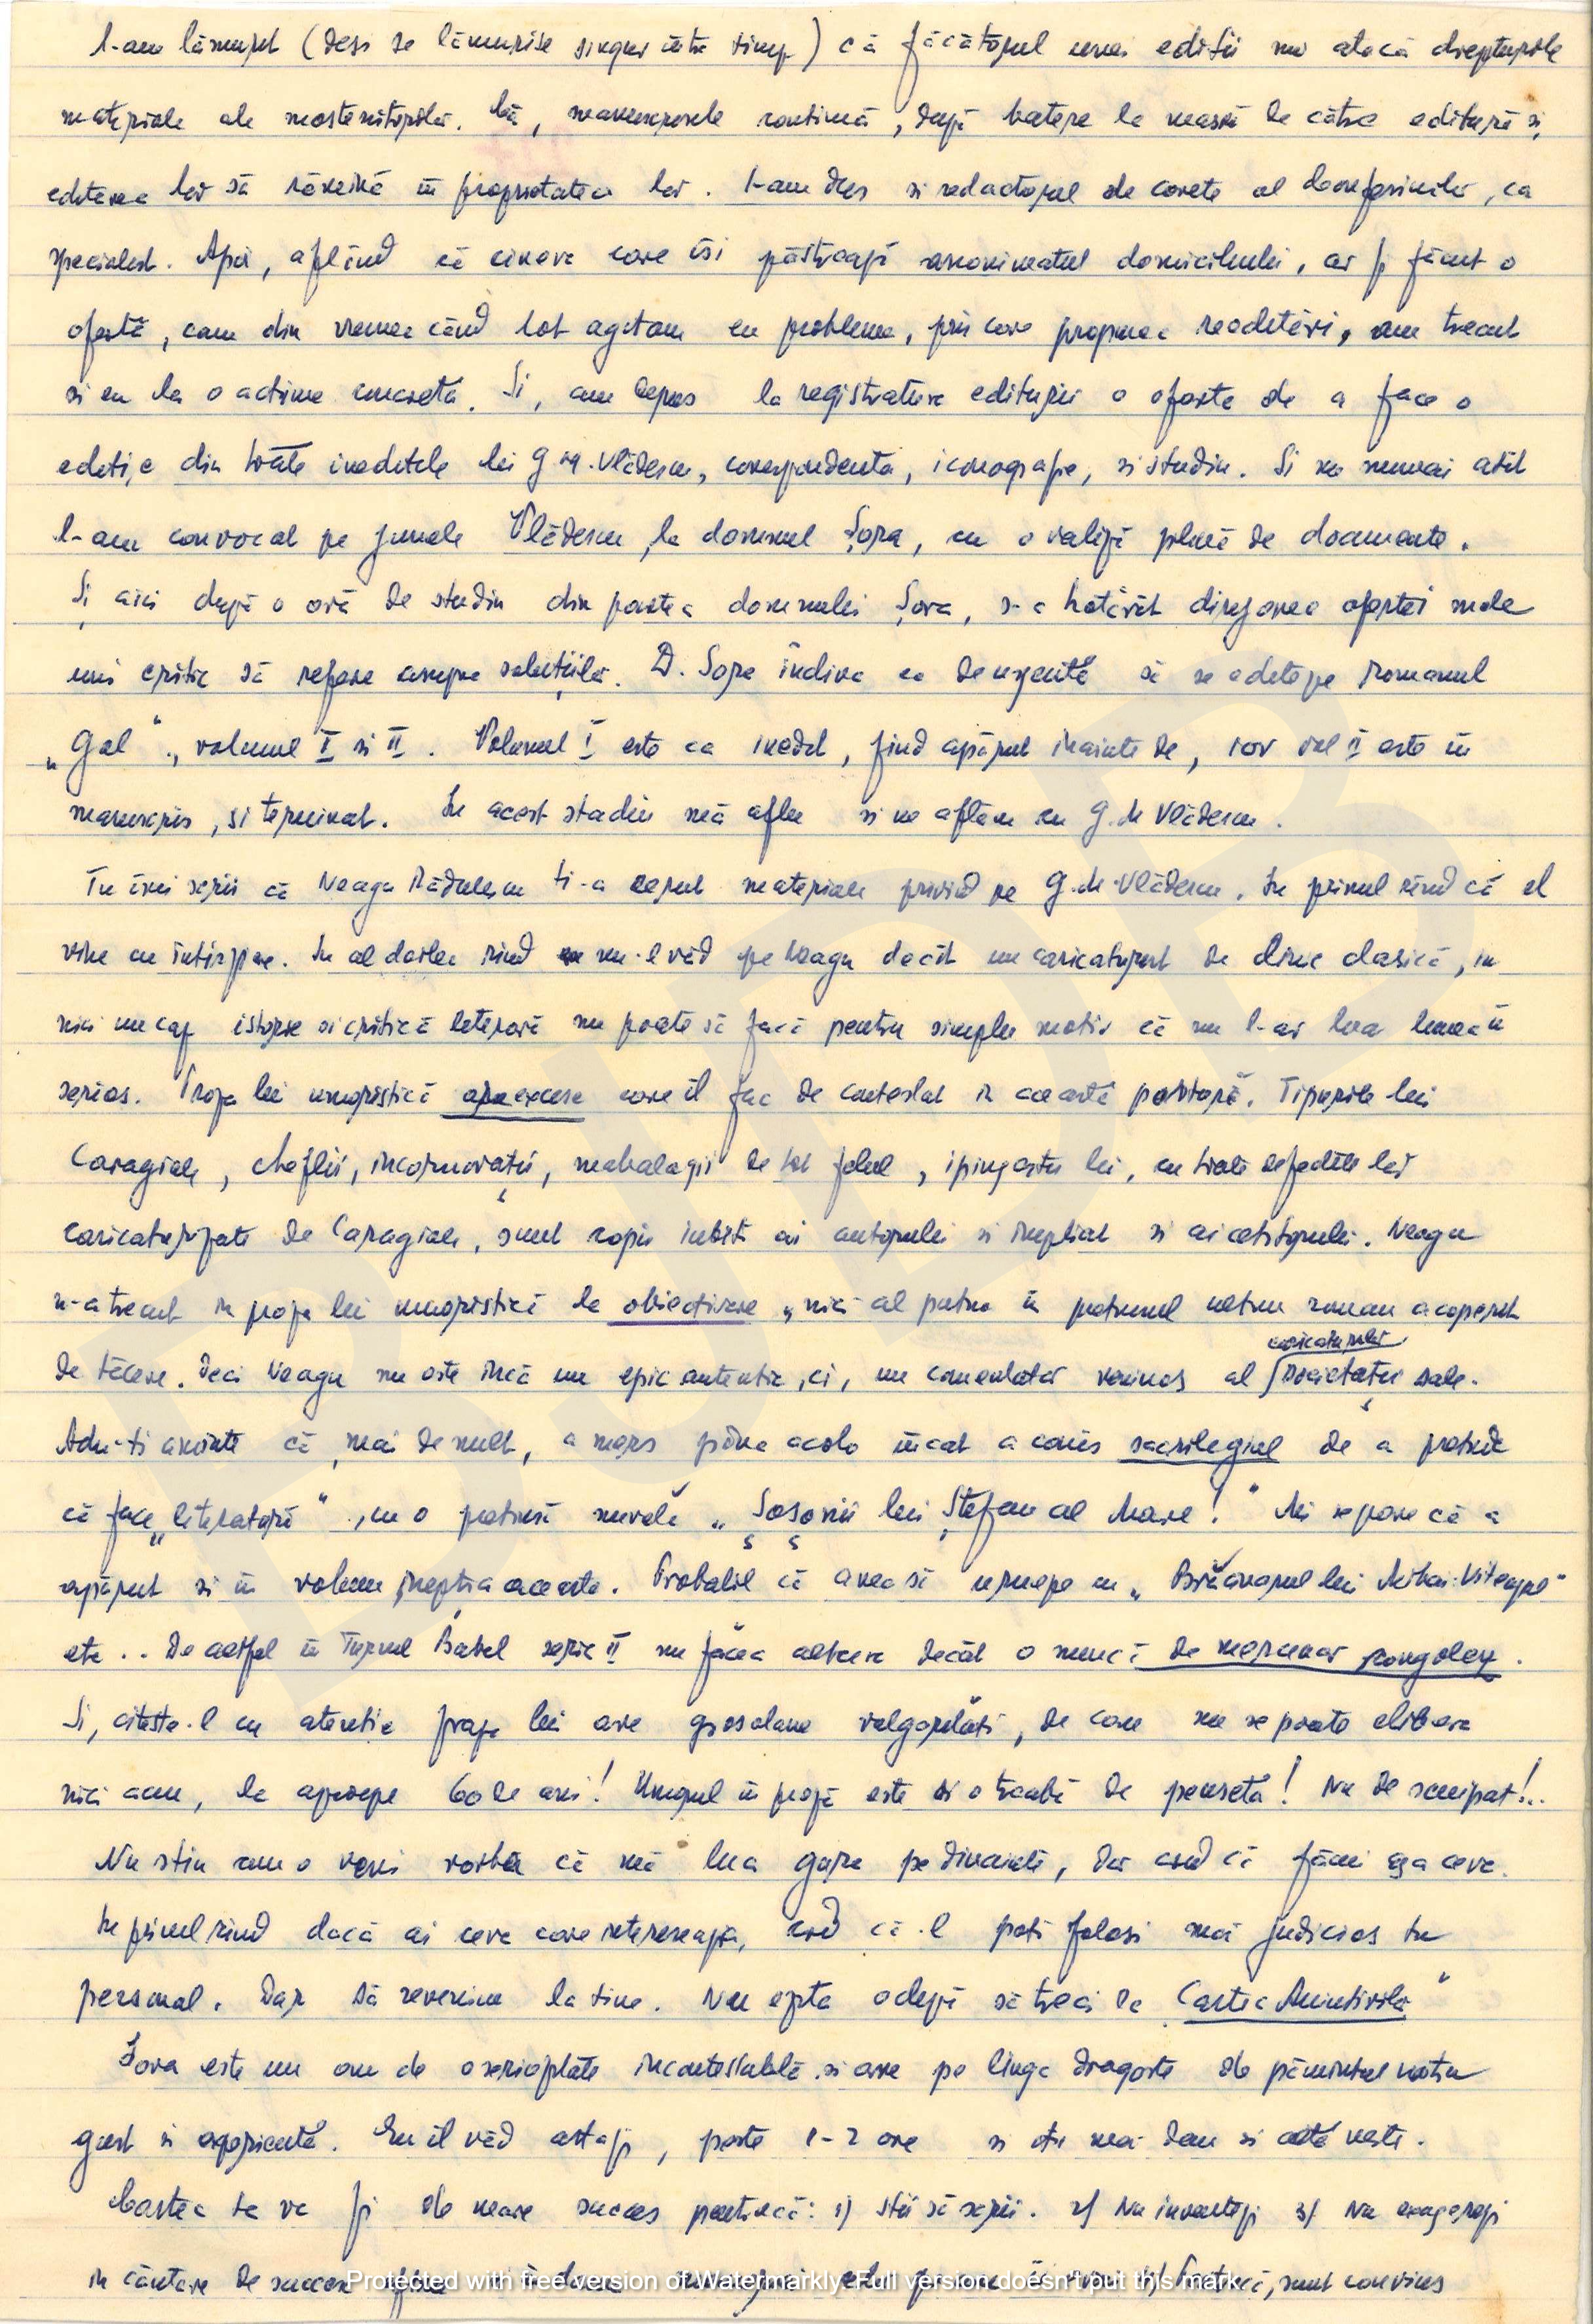 l-am lămurit (deși se lămurise singur între timp) că făcătorul unei ediții nu atacă drepturile
materiale ale moștenitorilor. Că, manuscrisele continuă, după batere la mașină de către editură și
editarea lor să rămână în proprietatea lor. I-am dus și redactorul de carte al , ca
specialist. Apoi, aflînd că cineva care își păstrează anonimatul domiciliului, ar fi făcut o
ofertă, cam din vremea cînd tot agitam eu problema, prin care propunea reeditări, am trecut
si eu la o acțiune concretă. Si, am depus la registratura editurii o oferta de a face o
ediție din toate ineditele lui G. M. Vlădescu, corespondența, iconografie, si studiu. Si nu numai atît
l-am convocat pe junele Vlădescu, la domnul Șora, cu o valiză plină de documente.
Și aici după o oră de studiu din partea domnului Șora, s-a hotărît dirijarea ofertei mele
unui critic să refere asupra soluțiilor. D. Șora indica ca de urgență să se editeze romanul
„Gol”, volumul I si II. Volumul I este ca inedit, fiind apărut inainte de, iar vol II este în
manuscris, si terminat. In acest stadiu mă aflu si ne aflăm cu G. M Vlădescu.
Tu îmi scrii că Neagu Rădulescu ti-a cerut materiale privind pe G. M. Vlădescu. In primul rînd că el
vine cu întirziere. In al doilea rînd nu-l văd pe Neagu decît un caricaturist de linie clasică, in
nici un caz istorie si critică literară nu poate să facă pentru simplu motiv că nu l-ar lua lumea în
serios. Proza lui umoristică are excese care îl fac de contestat in această postură. Tipurile lui
Caragiale, cheflii, incornorații, mahalagii de tot felul, lui, cu toate defectele lor
caricaturizate de Caragiale, sunt copii iubiti ai autorului si implicit si ai cititorului. Neagu
n-a trecut in proza lui umoristică la obiectivare „nici al patru în pătrunul nostru roman acoperit
de tăcere. Deci Neagu nu este încă un epic autentic, ci, un comentator veninos al societății sale.
caricaturilor
Adu-ti aminte că, mai de mult, a mers pîna acolo încat a comis sacrilegiul de a pretinde
că face „literatură”, cu o pretinsă nuvelă „Șoșonii lui Ștefan cel Mare!” Mi se pare că a
apărut si în volum ineptia aceasta. Probabil că avea să urmeze cu „ lui Mihai Viteazul”
etc.. De altfel în Turnul Babel seria II nu făcea altceva decât o muncă de mercenar congolez.
Si, citeste-l cu atentie proza lui are grosolane vulgarităti, de care nu se poate elibera
nici acu, la aproape 60 de ani! Umorul în proză este si o treabă de pensetă! Nu de scuipat!..
Nu stiu cum o veni vorba că mă lua gura pe dinainte, dar cred că făcui așa ceva.
In primul rînd dacă ai ceva care intereseaza, cred că-l poti folosi mai judicios tu
personal. Dar să revenim la tine. Nu ezita o clipă să treci la „Cartea Amintirilor”
Șora este un om de o seriozitate incontestabilă si are pe linga dragoste de pămîntul nostru
gust si experiență. Eu îl văd astazi, peste 1-2 ore si îți mai dau si altă veste.
Cartea ta va fi de mare succes pentrucă: 1) Stii să scrii. 2) Nu inventezi 3) Nu exagerezi
in căutare de succese , sunt convins
Protected with free version of Watermarkly. Full version doesn't put this mark.